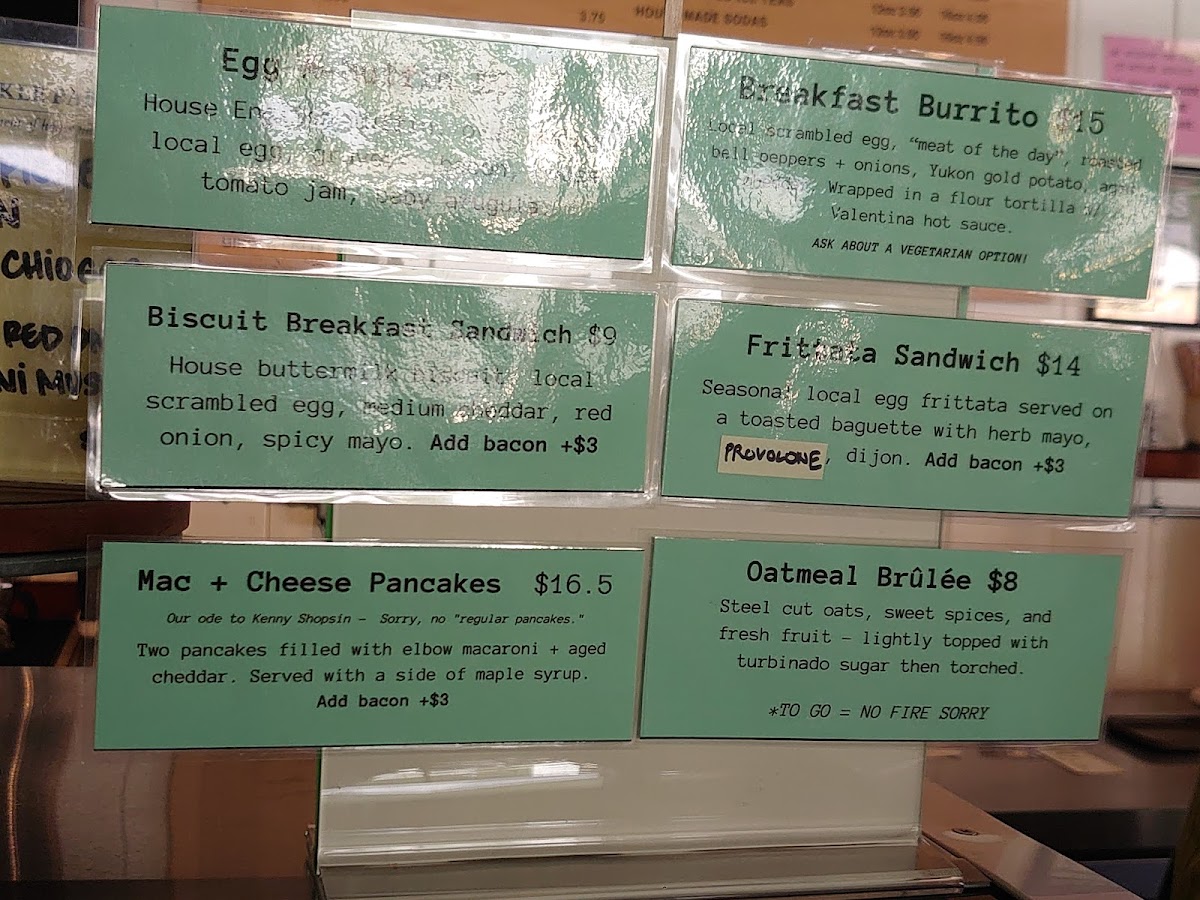 3.75 HOU MADE SODAS
Egg
House En
local egg,
tomato jam, baby arugula
Breakfast Burrito $15
Local scrambled egg, "meat of the day", roasted
bell peppers + onions, Yukon gold potato,
Wrapped in a flour tortilla w/
Valentina hot sauce.
ASK ABOUT A VEGETARIAN OPTION!
Biscuit Breakfast Sandwich $9
House buttermilk biscuit, local
scrambled egg, medium cheddar, red
onion, spicy mayo. Add bacon +$3
Frittata Sandwich $14
Seasonal local egg frittata served on
a toasted baguette with herb mayo,
PROVOLONE, dijon. Add bacon +$3
Mac + Cheese Pancakes $16.5
Our ode to Kenny Shopsin – Sorry, no "regular pancakes."
Two pancakes filled with elbow macaroni + aged
cheddar. Served with a side of maple syrup.
Add bacon +$3
Oatmeal Brûlée $8
Steel cut oats, sweet spices, and
fresh fruit – lightly topped with
turbinado sugar then torched.
*TO GO = NO FIRE SORRY
CHIOG
RED
NI MUS